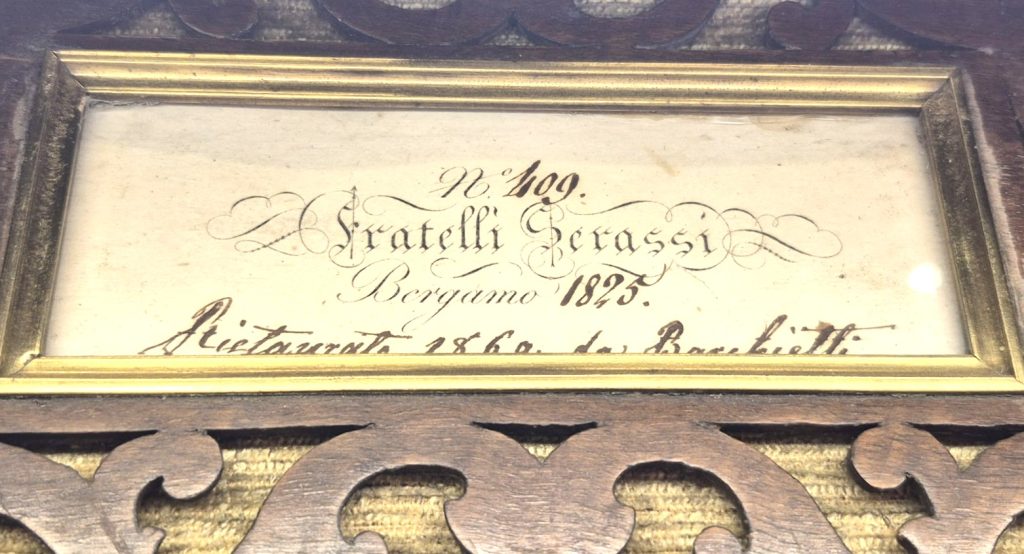 N.º 409.
Fratelli Serassi
Bergamo 1825.
Ristaurato 1869 da Barchietti